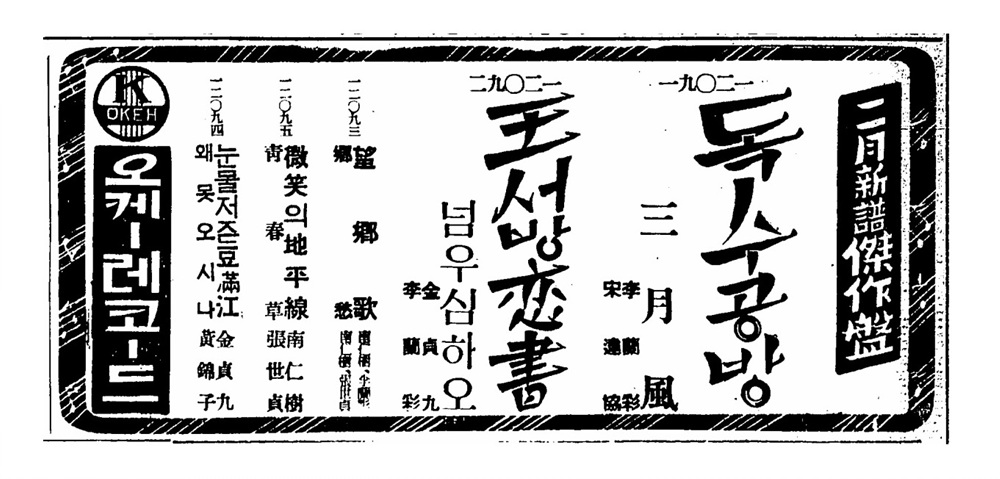 二月新譜傑作盤
一二〇九一
독수공방
三月風
李蘭彩
宋達協
一二〇九二
王서방恋書
넘우심하오
金貞九
李蘭彩
一二〇九三
望鄕歌
鄕愁
一二〇九五
微笑의地平線 南仁樹
靑春草 張世貞
一二〇九四
눈물저즌豆滿江 金貞九
왜못오시나 黃錦子
K
OKEH
오케ー레코ー드